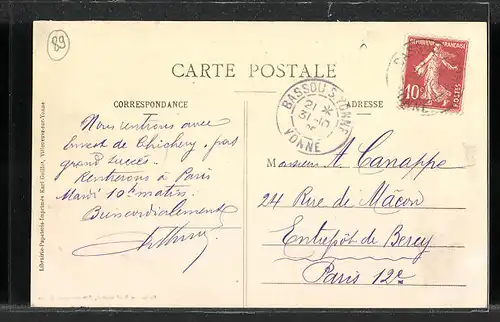 89
CARTE POSTALE
CORRESPONDANCE
ADRESSE
Librairie-Papeterie-Imprimerie Karl Guillot, Villeneuve-sur-Yonne
REPUBLIQUE FRANÇAISE
10c
POSTES
BASSOU S. YONNE
21 *
31
YONNE
Nous rentrons avec
Ernest de Chichery, fort
grand succès.
Rentrerons à Paris
Mardi 10h matin.
Bien cordialement
Monsieur A. Canappe
24 Rue de Mâcon
Entrepôt de Bercy
Paris 12e